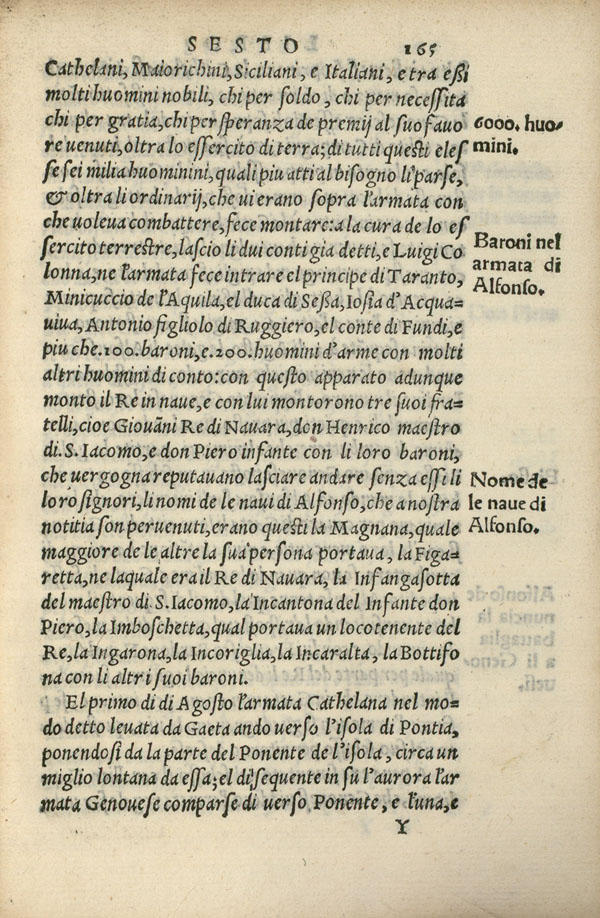 SESTO 165
Cathelani, Maiorichini, Siciliani, e Italiani, e tra eßi
molti huomini nobili, chi per soldo, chi per necessita
chi per gratia, chi per speranza de premij al suo fauo
re uenuti, oltra lo essercito di terra; di tutti questi eles
se sei milia huominini, quali piu atti al bisogno li parse,
& oltra li ordinarij, che ui erano sopra l'armata con
che uoleua combattere, fece montare: a la cura de lo es
sercito terrestre, lascio li dui conti gia detti, e Luigi Co
lonna, ne l'armata fece intrare el principe di Taranto,
Minicuccio de l'Aquila, el duca di Seßa, Iosia d'Acqua=
uiua, Antonio figliolo di Ruggiero, el conte di Fundi, e
piu che .100. baroni, e .200. huomini d'arme con molti
altri huomini di conto: con questo apparato adunque
monto il Re in naue, e con lui montorono tre suoi fra=
telli, cioe Giouãni Re di Nauara, don Henrico maestro
di .S. Iacomo, e don Piero infante con li loro baroni,
che uergogna reputauano lasciare andare senza essi li
loro signori, li nomi de le naui di Alfonso, che a nostra
notitia son peruenuti, erano questi la Magnana, quale
maggiore de le altre la sua persona portaua, la Figa=
retta, ne laquale era il Re di Nauara, la Infangasotta
del maestro di .S. Iacomo, la Incantona del Infante don
Piero, la Imboschetta, qual portaua un locotenente del
Re, la Ingarona, la Incoriglia, la Incaralta, la Bottifo
na con li altri suoi baroni.
El primo di di Agosto l'armata Cathelana nel mo=
do detto leuata da Gaeta ando uerso l'isola di Pontia,
ponendosi da la parte del Ponente de l'isola, circa un
miglio lontana da essa; el di sequente in su l'aurora l'ar
mata Genouese comparse di uerso Ponente, e l'una, e
Y
6000. huo-
mini.
Baroni nel
armata di
Alfonso.
Nome de
le naue di
Alfonso.